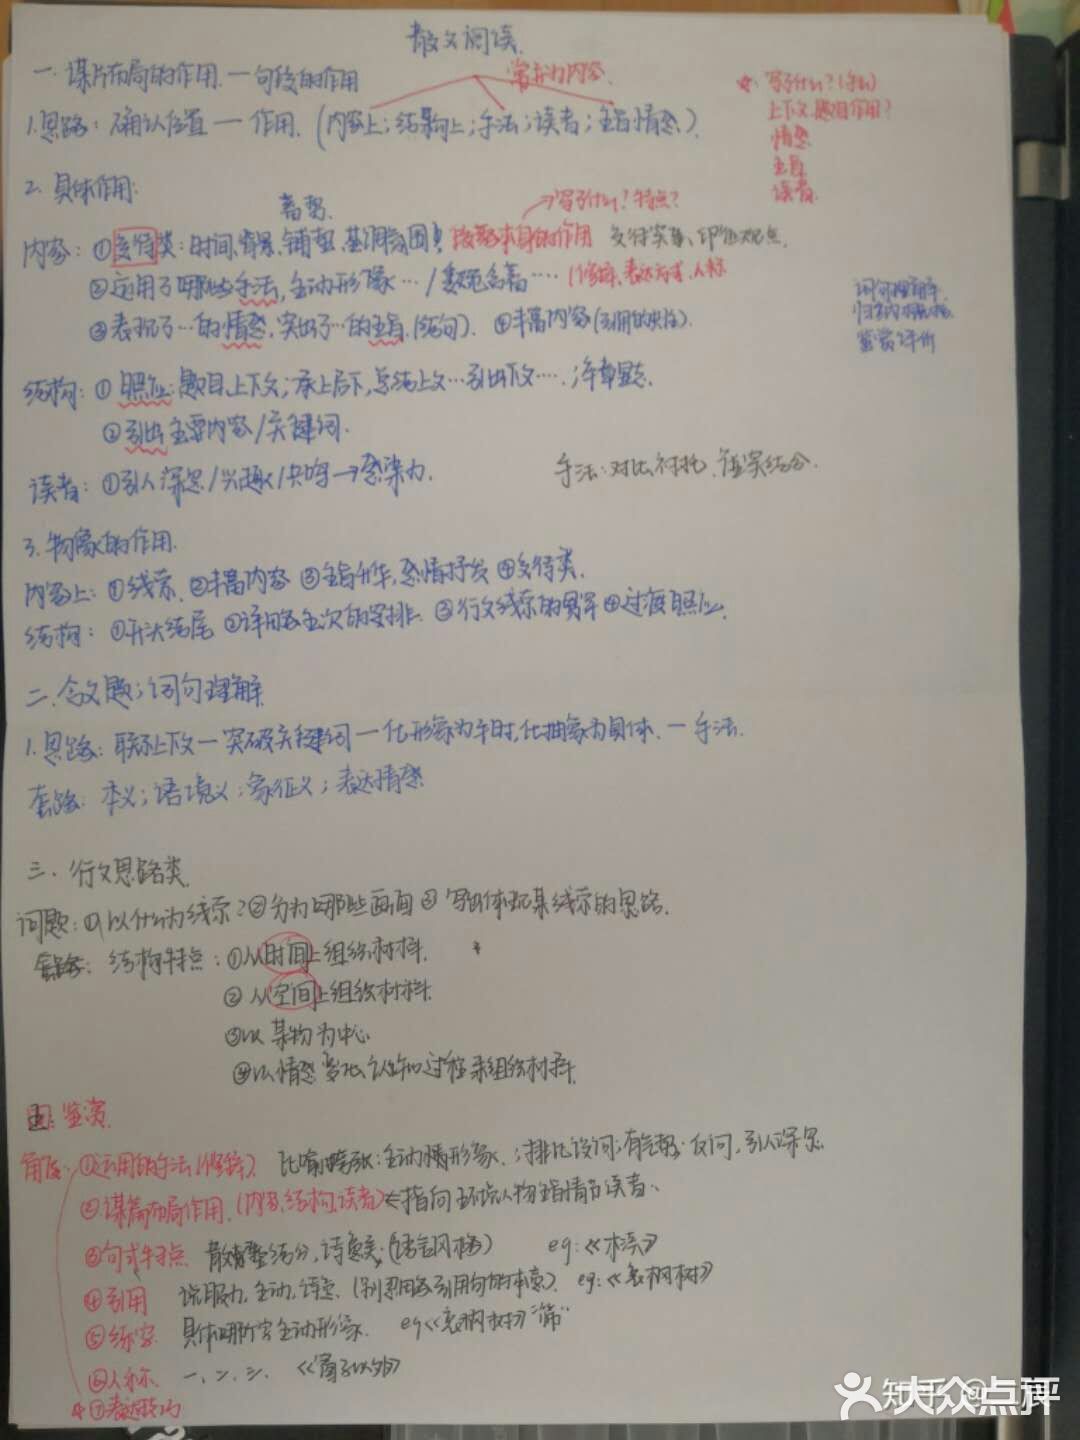 散文阅读.
一. 谋片布局的作用. 一句段的作用
常并为内容.
写了什么?(手法)
上下文.题目作用?
情感
主旨
读者.
1.思路: 确认位置 — 作用. (内容上; 结构上; 手法; 读者; 主旨情感.)
2. 具体作用:
蓄势.
→写了什么? 特点?
内容: ①交待类: 时间.背景.铺垫.基调氛围! 段落本身的作用 交待实事、印证观点.
②运用了哪些手法, 生动形象…/…… (修辞, 表达方式, 人称
③表现了…的情感, 突出了…的主旨.(结句). ④丰富内容(引用的内容).
词句理解.
归纳概括.
鉴赏评价
结构: ①照应: 题目.上下文; 承上启下, 总结上文…引出下文…; 卒章显志.
②引出主要内容/关键词.
读者: ①引人深思/兴趣/共鸣→感染力.
手法:对比衬托. 虚实结合.
3. 物象的作用.
内容上: ①线索. ②丰富内容 ③主旨升华, 感情抒发 ④交待类.
结构: ①开头结尾 ②详略主次的安排. ③行文线索的贯穿 ④过渡照应.
二. 含义题; 词句理解
1.思路: 联系上下文一突破关键词一化形象为平时, 化抽象为具体. 一手法.
套路: 本义; 语境义; 象征义; 表达情感
三. 行文思路类.
问题: ①以什么为线索? ②分为哪些画面 ③写出体现某线索的思路.
套路: 结构特点: ①从时间上组织材料.
②从空间上组织材料.
③以某物为中心
④以情感变化认知过程来组织材料.
鉴赏.
角度: ①运用的手法(修辞) 比喻夸张: 生动形象.; 排比设问; 有气势; 反问, 引人深思.
②谋篇布局作用. (内容,结构,读者)←指向环境人物主旨情节读者.
③句式特点 散整结合, 诗意美; (语言风格) eg:《》
④引用 说服力, 生动, 诗意. (别忽略引用句的本意). eg:《老枫树》
⑤练字. 具体哪个字生动形象. eg《老枫树》"筛"
⑥人称. 一、二、三. 《窗子以外》
⑦表达技巧
知乎 @
大众点评